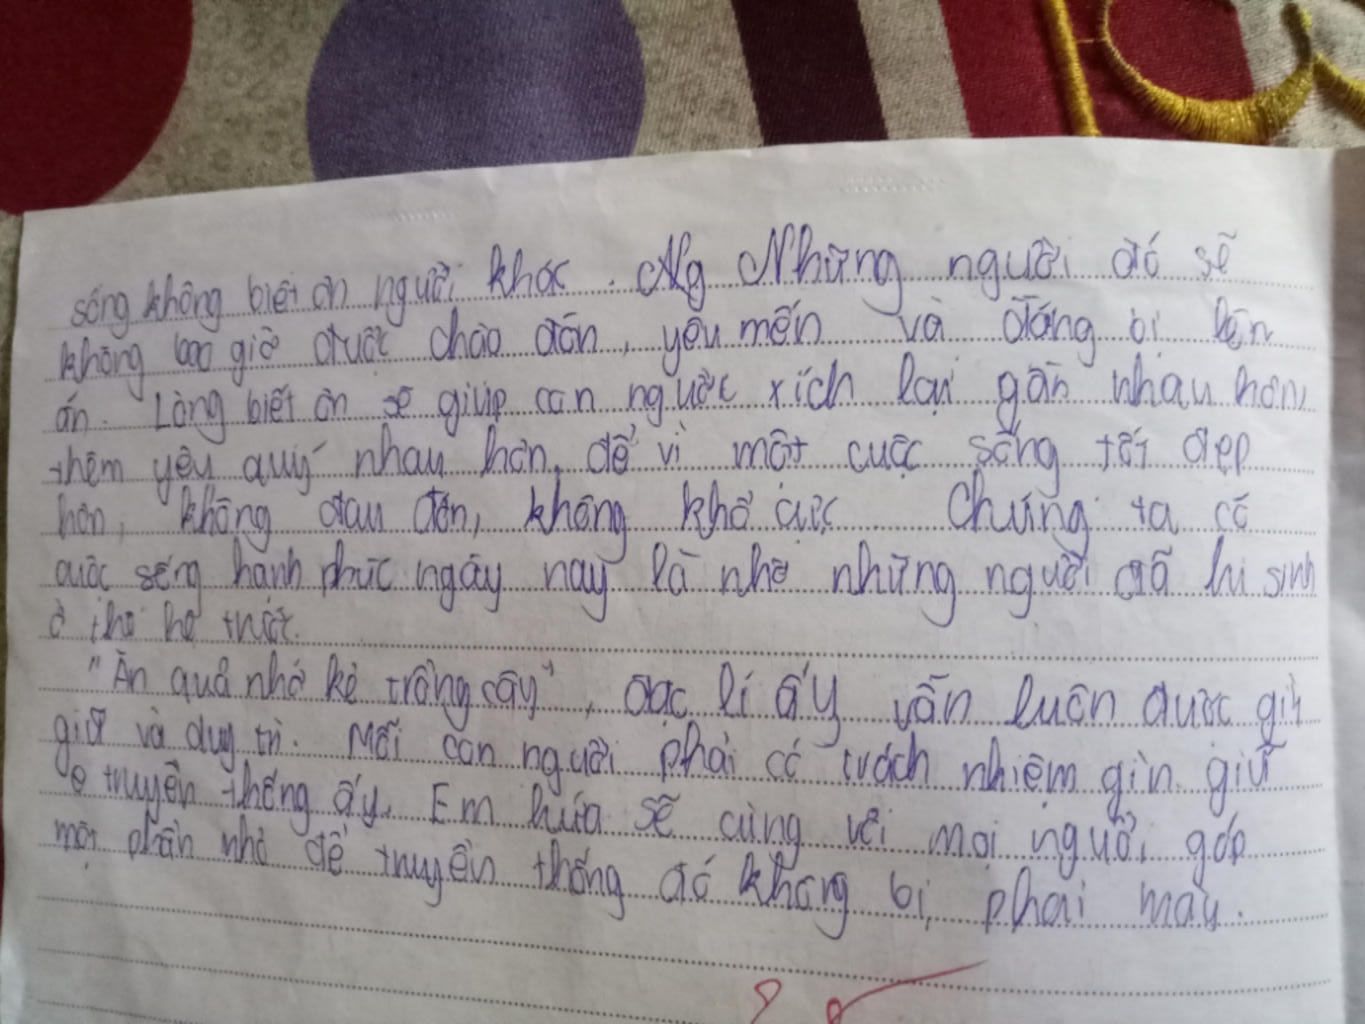 sống không biết ơn người khác. Ng Những người đó sẽ
không bao giờ được chào đón, yêu mến và đáng bị lên
án. Lòng biết ơn sẽ giúp con người xích lại gần nhau hơn,
thêm yêu quý nhau hơn, để vì một cuộc sống tốt đẹp
hơn, không đau đớn, không khổ cực Chúng ta có
cuộc sống hạnh phúc ngày nay là nhờ những người đã hi sinh
ở thế hệ trước.
"Ăn quả nhớ kẻ trồng cây", đạc lí ấy vẫn luôn được gìn
giữ và duy trì. Mỗi con người phải có trách nhiệm gìn giữ
truyền thống ấy. Em hứa sẽ cùng với mọi người góp
một phần nhỏ để truyền thống đó không bị phai màu.